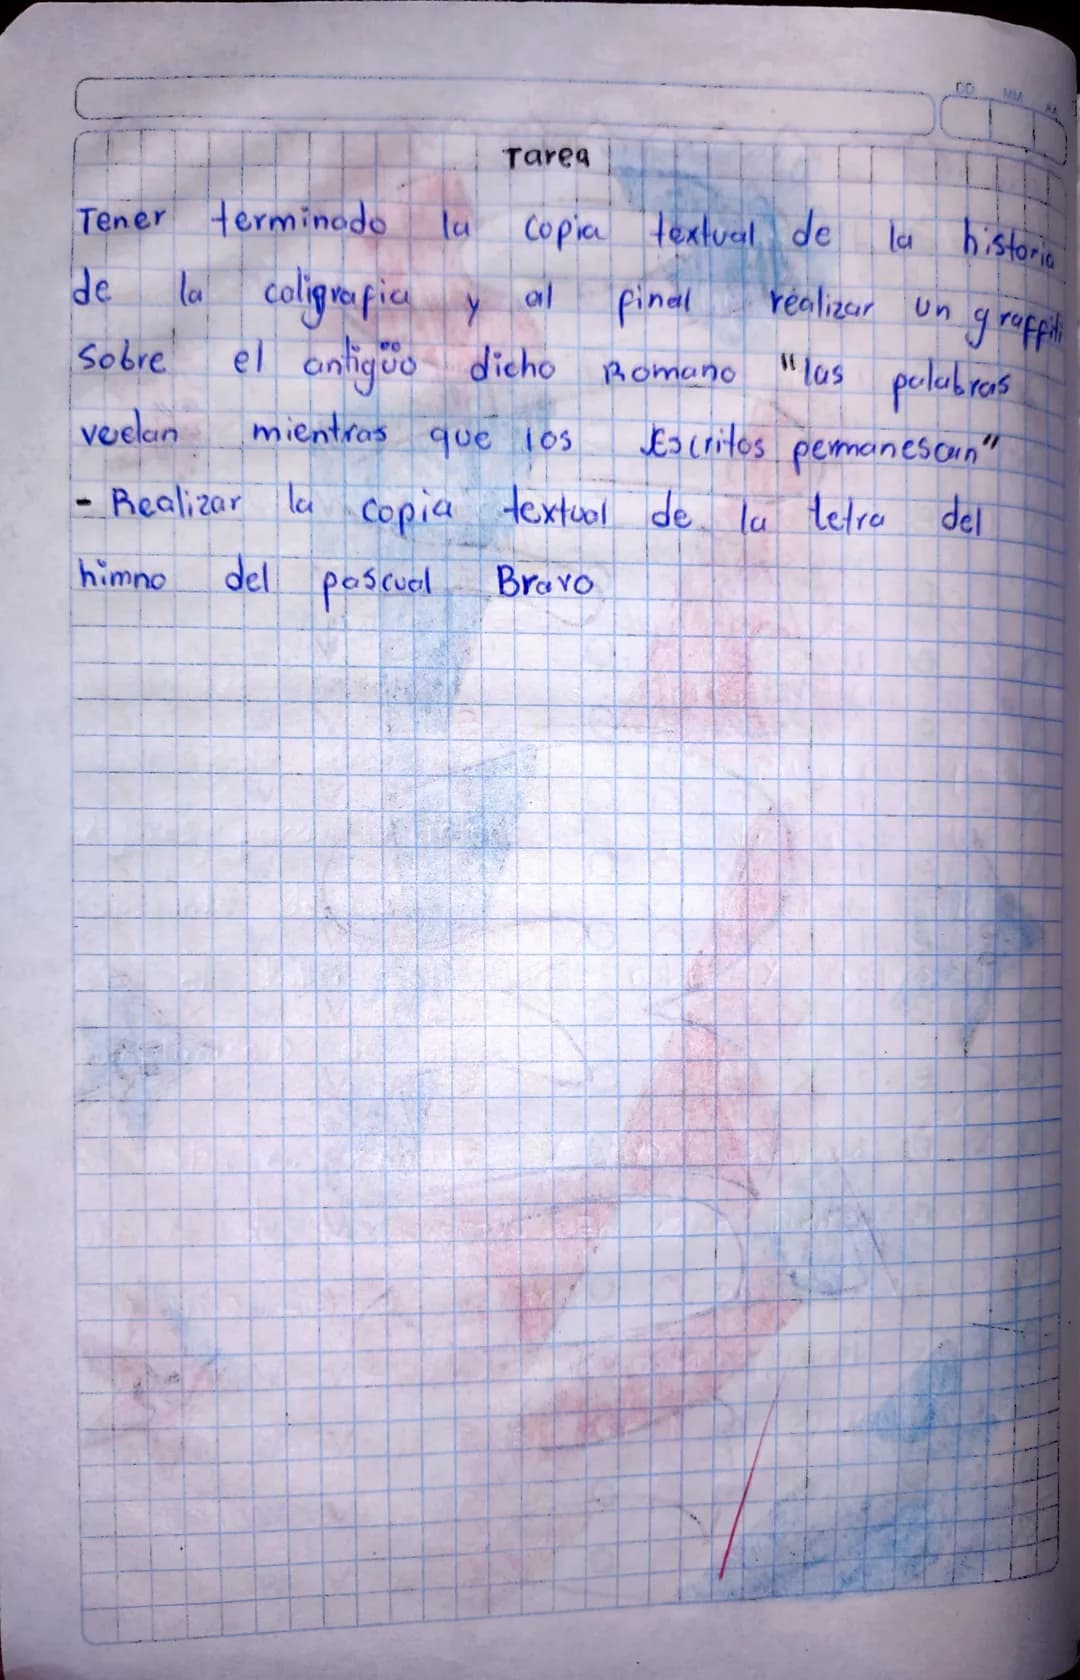 DD MM AA
Tarea
Tener terminado la copia textual de la historia
de la caligrafia y al final realizar un graffiti
Sobre el antigüo dicho Romano "las palabras
vuelan mientras que los Escritos permanescan"
- Realizar la copia textual de la letra del
himno del pascual Bravo